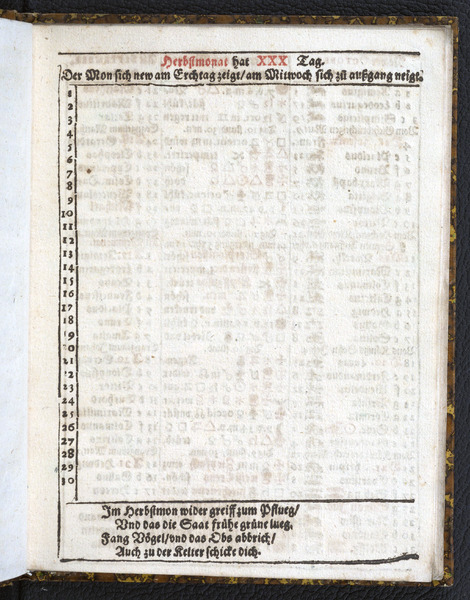 Herbstmonat hat XXX Tag.
Der Mon sich new am Erchtag zeigt/ am Mitwoch sich zů außgang neigt.
1
2
3
4
5
6
7
8
9
10
11
12
13
14
15
16
17
18
19
20
21
22
23
24
25
26
27
28
29
30
Im Herbstmon wider greiff zum Pflueg/
Vnd das die Saat frühe grüne lueg.
Fang Vögel/ vnd das Obs abbrich/
Auch zu der Kelter schicke dich.